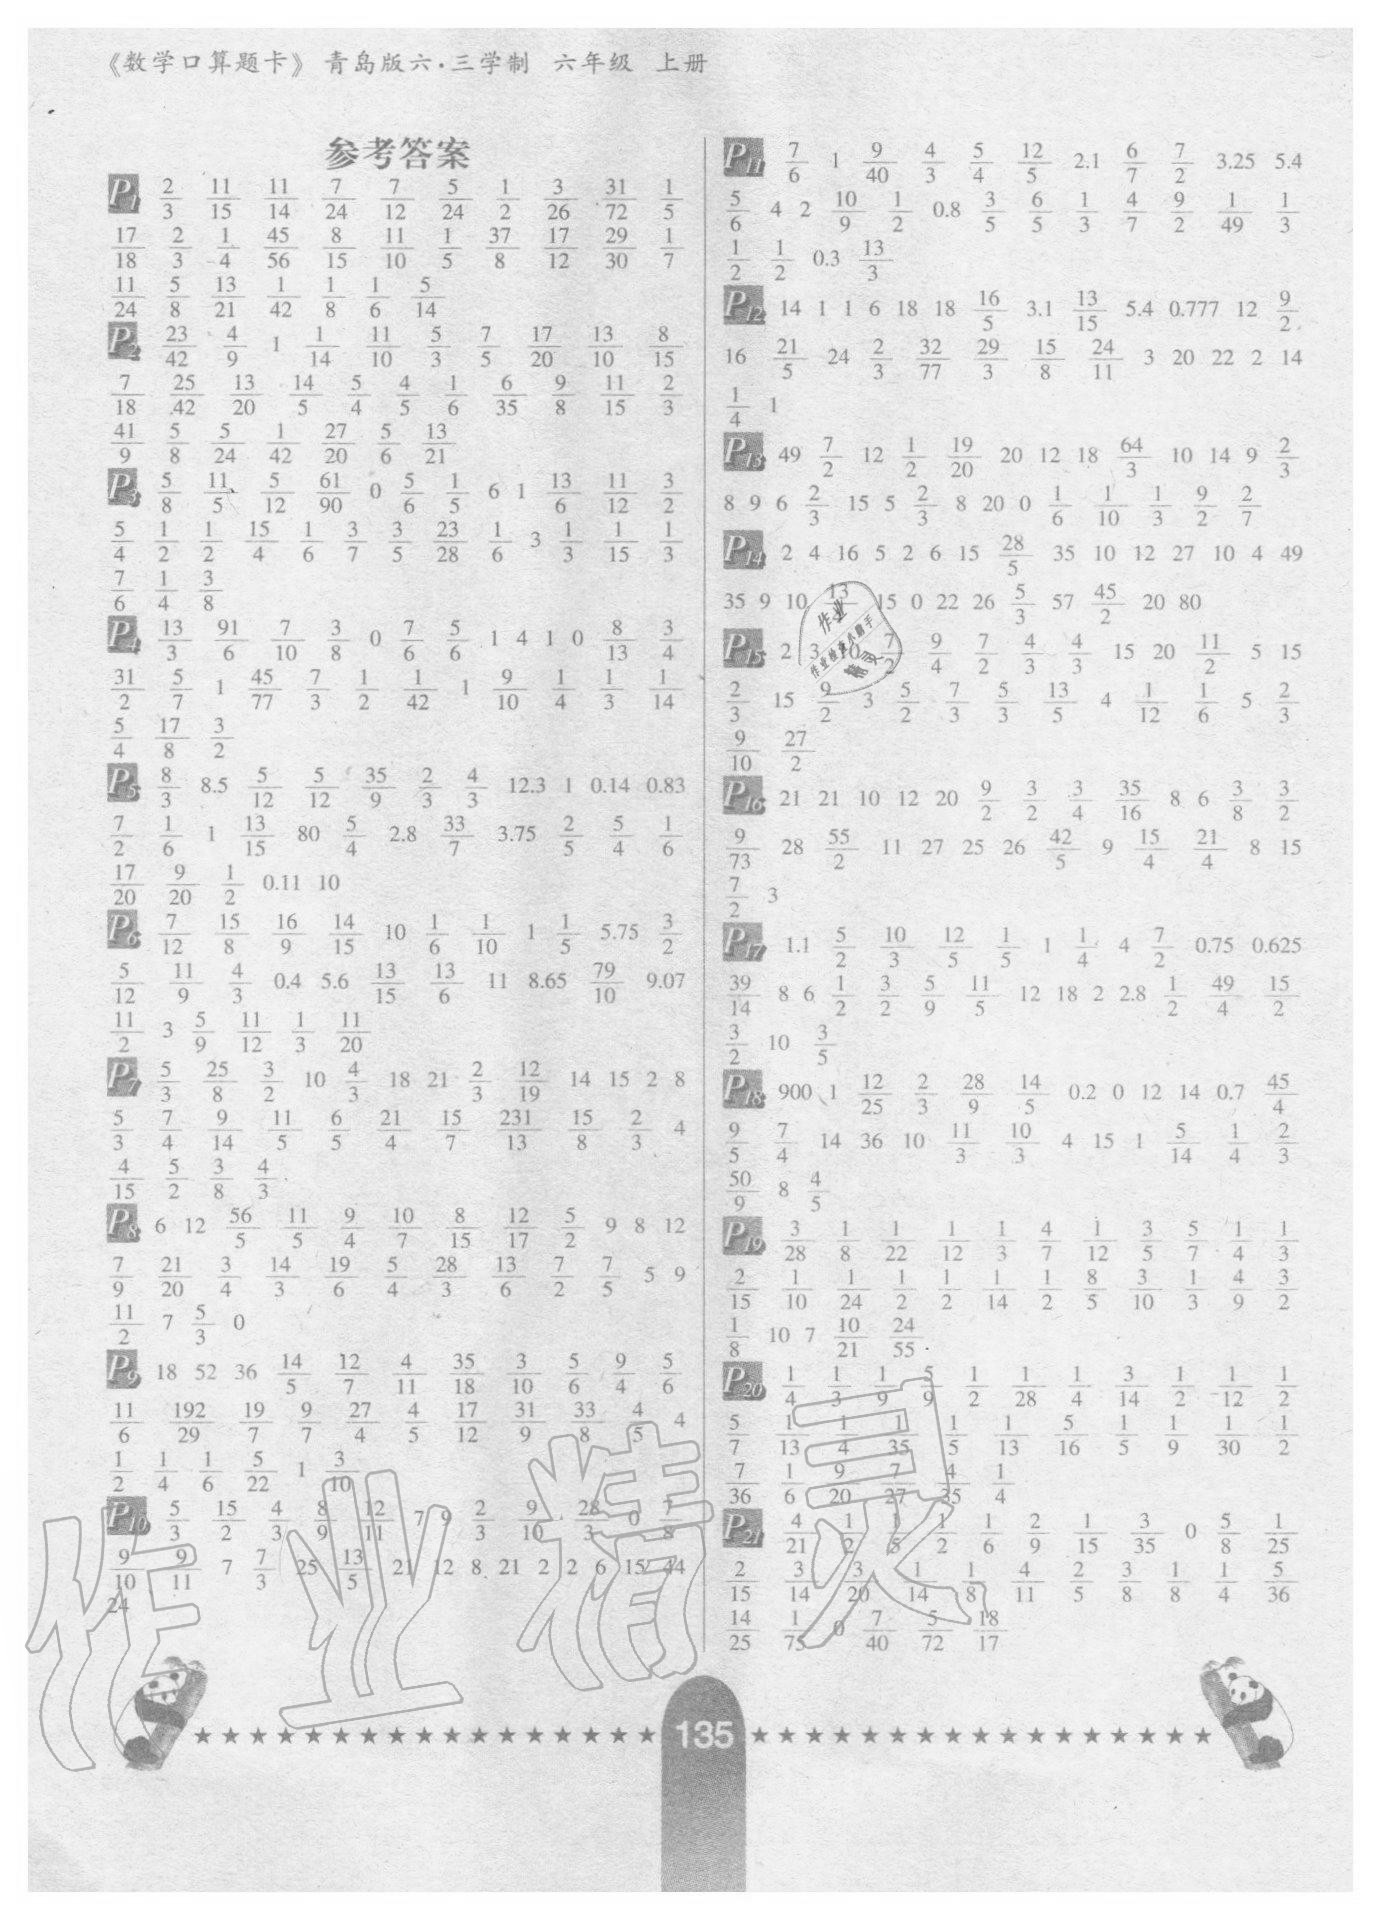 《数学口算题卡》 青岛版六·三学制 六年级 上册
参考答案
P1 2/3 11/15 11/14 7/24 7/12 5/24 1/2 3/26 31/72 1/5
17/18 2/3 1/4 45/56 8/15 11/10 1/5 37/8 17/12 29/30 1/7
11/24 5/8 13/21 1/42 1/8 1/6 5/14
P2 23/42 4/9 1 1/14 11/10 5/3 7/5 17/20 13/10 8/15
7/18 25/42 13/20 14/5 5/4 4/5 1/6 6/35 9/8 11/15 2/3
41/9 5/8 5/24 1/42 27/20 5/6 13/21
P3 5/8 11/5 5/12 61/90 0 5/6 1/5 6 1 13/6 11/12 3/2
5/4 1/2 1/2 15/4 1/6 3/7 3/5 23/28 1/6 3 1/3 1/15 1/3
7/6 1/4 3/8
P4 13/3 91/6 7/10 3/8 0 7/6 5/6 1 4 1 0 8/13 3/4
31/2 5/7 1 45/77 7/3 1/2 1/42 1 9/10 1/4 1/3 1/14
5/4 17/8 3/2
P5 8/3 8.5 5/12 5/12 35/9 2/3 4/3 12.3 1 0.14 0.83
7/2 1/6 1 13/15 80 5/4 2.8 33/7 3.75 2/5 5/4 1/6
17/20 9/20 1/2 0.11 10
P6 7/12 15/8 16/9 14/15 10 1/6 1/10 1 1/5 5.75 3/2
5/12 11/9 4/3 0.4 5.6 13/15 13/6 11 8.65 79/10 9.07
11/2 3 5/9 11/12 1/3 11/20
P7 5/3 25/8 3/2 10 4/3 18 21 2/3 12/19 14 15 2 8
5/3 7/4 9/14 11/5 6/5 21/4 15/7 231/13 15/8 2/3 4
4/15 5/2 3/8 4/3
P8 6 12 56/5 11/5 9/4 10/7 8/15 12/17 5/2 9 8 12
7/9 21/20 3/4 14/3 19/6 5/4 28/3 13/6 7/2 7/5 5 9
11/2 7 5/3 0
P9 18 52 36 14/5 12/7 4/11 35/18 3/10 5/6 9/4 5/6
11/6 192/29 19/7 9/7 27/4 4/5 17/12 31/9 33/8 4/5 4
1/2 1/4 1/6 5/22 1 3/10
P10 5/3 15/2 4/3 8/9 12/11 7 9 2/3 9/10 28/3 0 7/8
9/10 9/11 7 7/3 25 13/5 21 12 8 21 2 2 6 15 44
24
P11 7/6 1 9/40 4/3 5/4 12/5 2.1 6/7 7/2 3.25 5.4
5/6 4 2 10/9 1/2 0.8 3/5 6/5 1/3 4/7 9/2 1/49 1/3
1/2 1/2 0.3 13/3
P12 14 1 1 6 18 18 16/5 3.1 13/15 5.4 0.777 12 9/2
16 21/5 24 2/3 32/77 29/3 15/8 24/11 3 20 22 2 14
1/4 1
P13 49 7/2 12 1/2 19/20 20 12 18 64/3 10 14 9 2/3
8 9 6 2/3 15 5 2/3 8 20 0 1/6 1/10 1/3 9/2 2/7
P14 2 4 16 5 2 6 15 28/5 35 10 12 27 10 4 49
35 9 10 15 0 22 26 5/3 57 45/2 20 80
P15 2 3 10 7/2 9/4 7/2 4/3 4/3 15 20 11/2 5 15
2/3 15 9/2 3 5/2 7/3 5/3 13/5 4 1/12 1/6 5 2/3
9/10 27/2
P16 21 21 10 12 20 9/2 3/2 3/4 35/16 8 6 3/8 3/2
9/73 28 55/2 11 27 25 26 42/5 9 15/4 21/4 8 15
7/2 3
P17 1.1 5/2 10/3 12/5 1/5 1 1/4 4 7/2 0.75 0.625
39/14 8 6 1/2 3/2 5/9 11/5 12 18 2 2.8 1/2 49/4 15/2
3/2 10 3/5
P18 900 1 12/25 2/3 28/9 14/5 0.2 0 12 14 0.7 45/4
9/5 7/4 14 36 10 11/3 10/3 4 15 1 5/14 1/4 2/3
50/9 8 4/5
P19 3/28 1/8 1/22 1/12 1/3 4/7 1/12 3/5 5/7 1/4 1/3
2/15 1/10 1/24 1/2 1/2 1/14 1/2 8/5 3/10 1/3 4/9 3/2
1/8 10 7 10/21 24/55
P20 1/4 1/3 1/9 5/9 1/2 1/28 1/4 3/14 1/2 1/12 1/2
5/7 1/13 1/4 1/35 1/5 1/13 5/16 1/5 1/9 1/30 1/2
7/36 1/6 9/20 7/27 4/35 1/4
P21 4/21 1/2 1/5 1/2 1/6 2/9 1/15 3/35 0 5/8 1/25
2/15 3/14 3/20 1/14 1/8 4/11 2/5 3/8 1/8 1/4 5/36
14/25 1/75 0 7/40 5/72 18/17
作业精灵
135